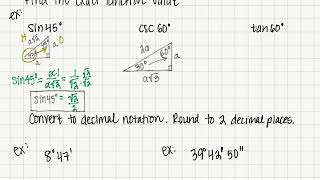 Find the exact function value
ex:
sin45° csc60° tan60°
H
O
a√2
a
45°
a
2a
60°
a
30°
a√3
sin45° = a·1/a√2 = 1/√2 · √2/√2
sin45° = √2/2
Convert to decimal notation. Round to 2 decimal places.
ex: 8°47' ex: 39°42'50"